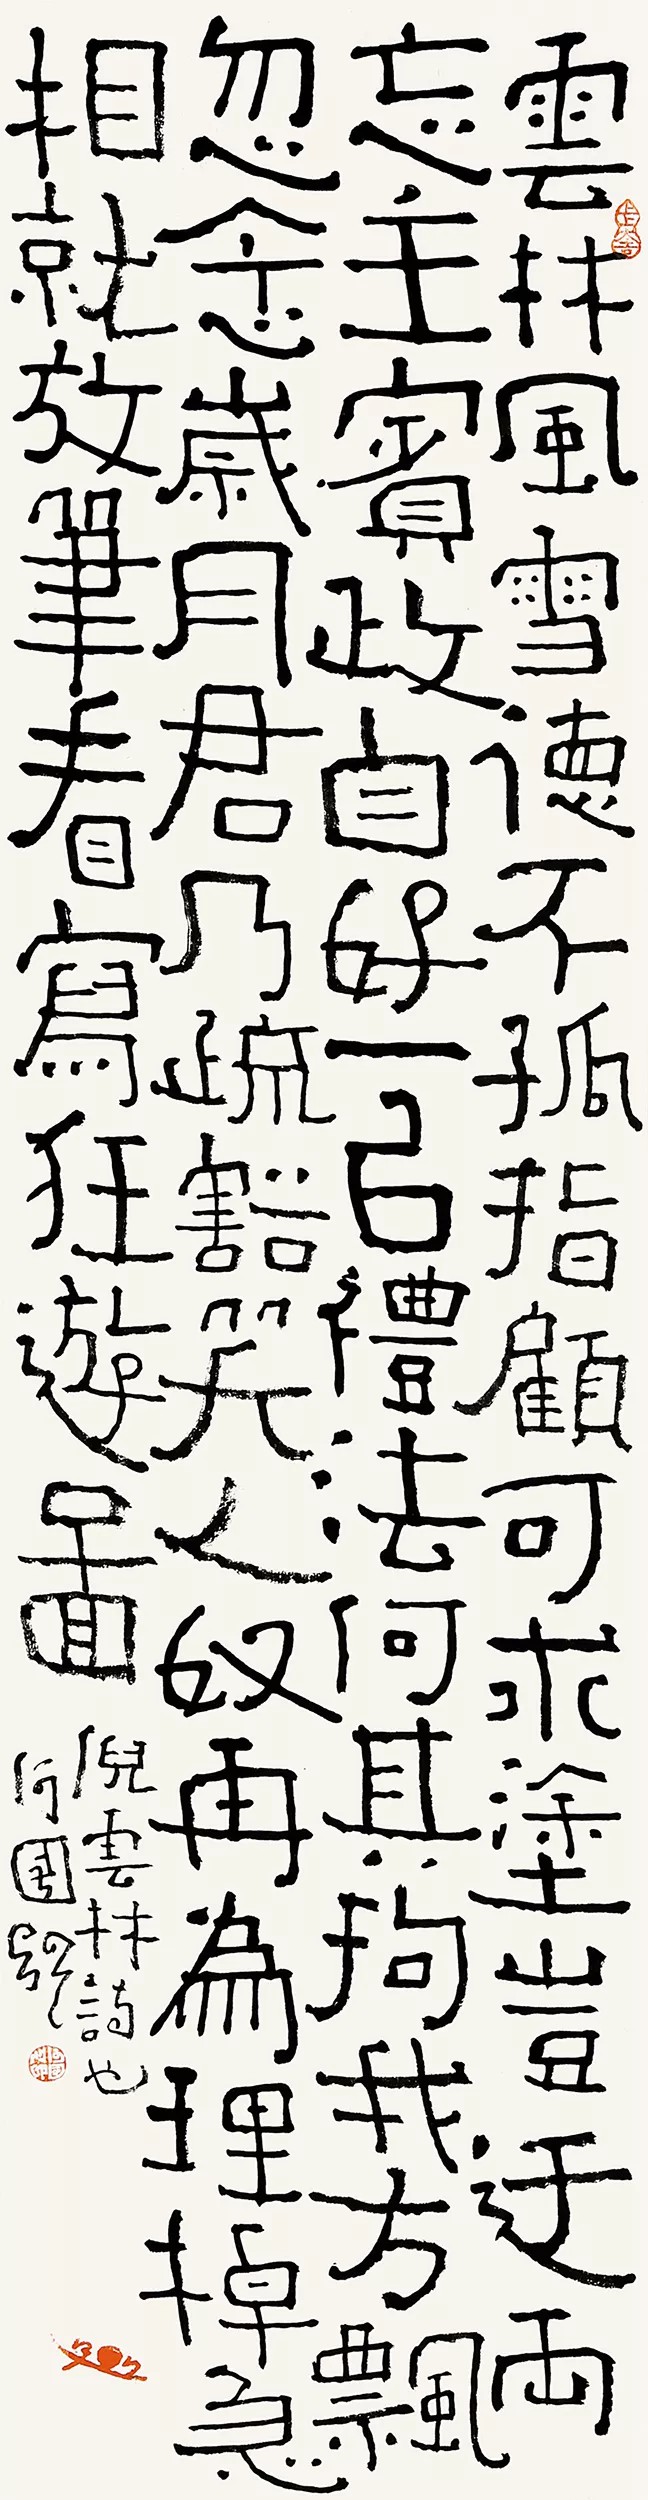 雲林風雪德不孤指顧可求塗豈迂兩
忘主賓政自好一禮法何其拘我方飄
忽念歲月君乃疏豁笑人奴再為理掉急
相就放筆看寫狂遊圖
倪雲林詩也
何國